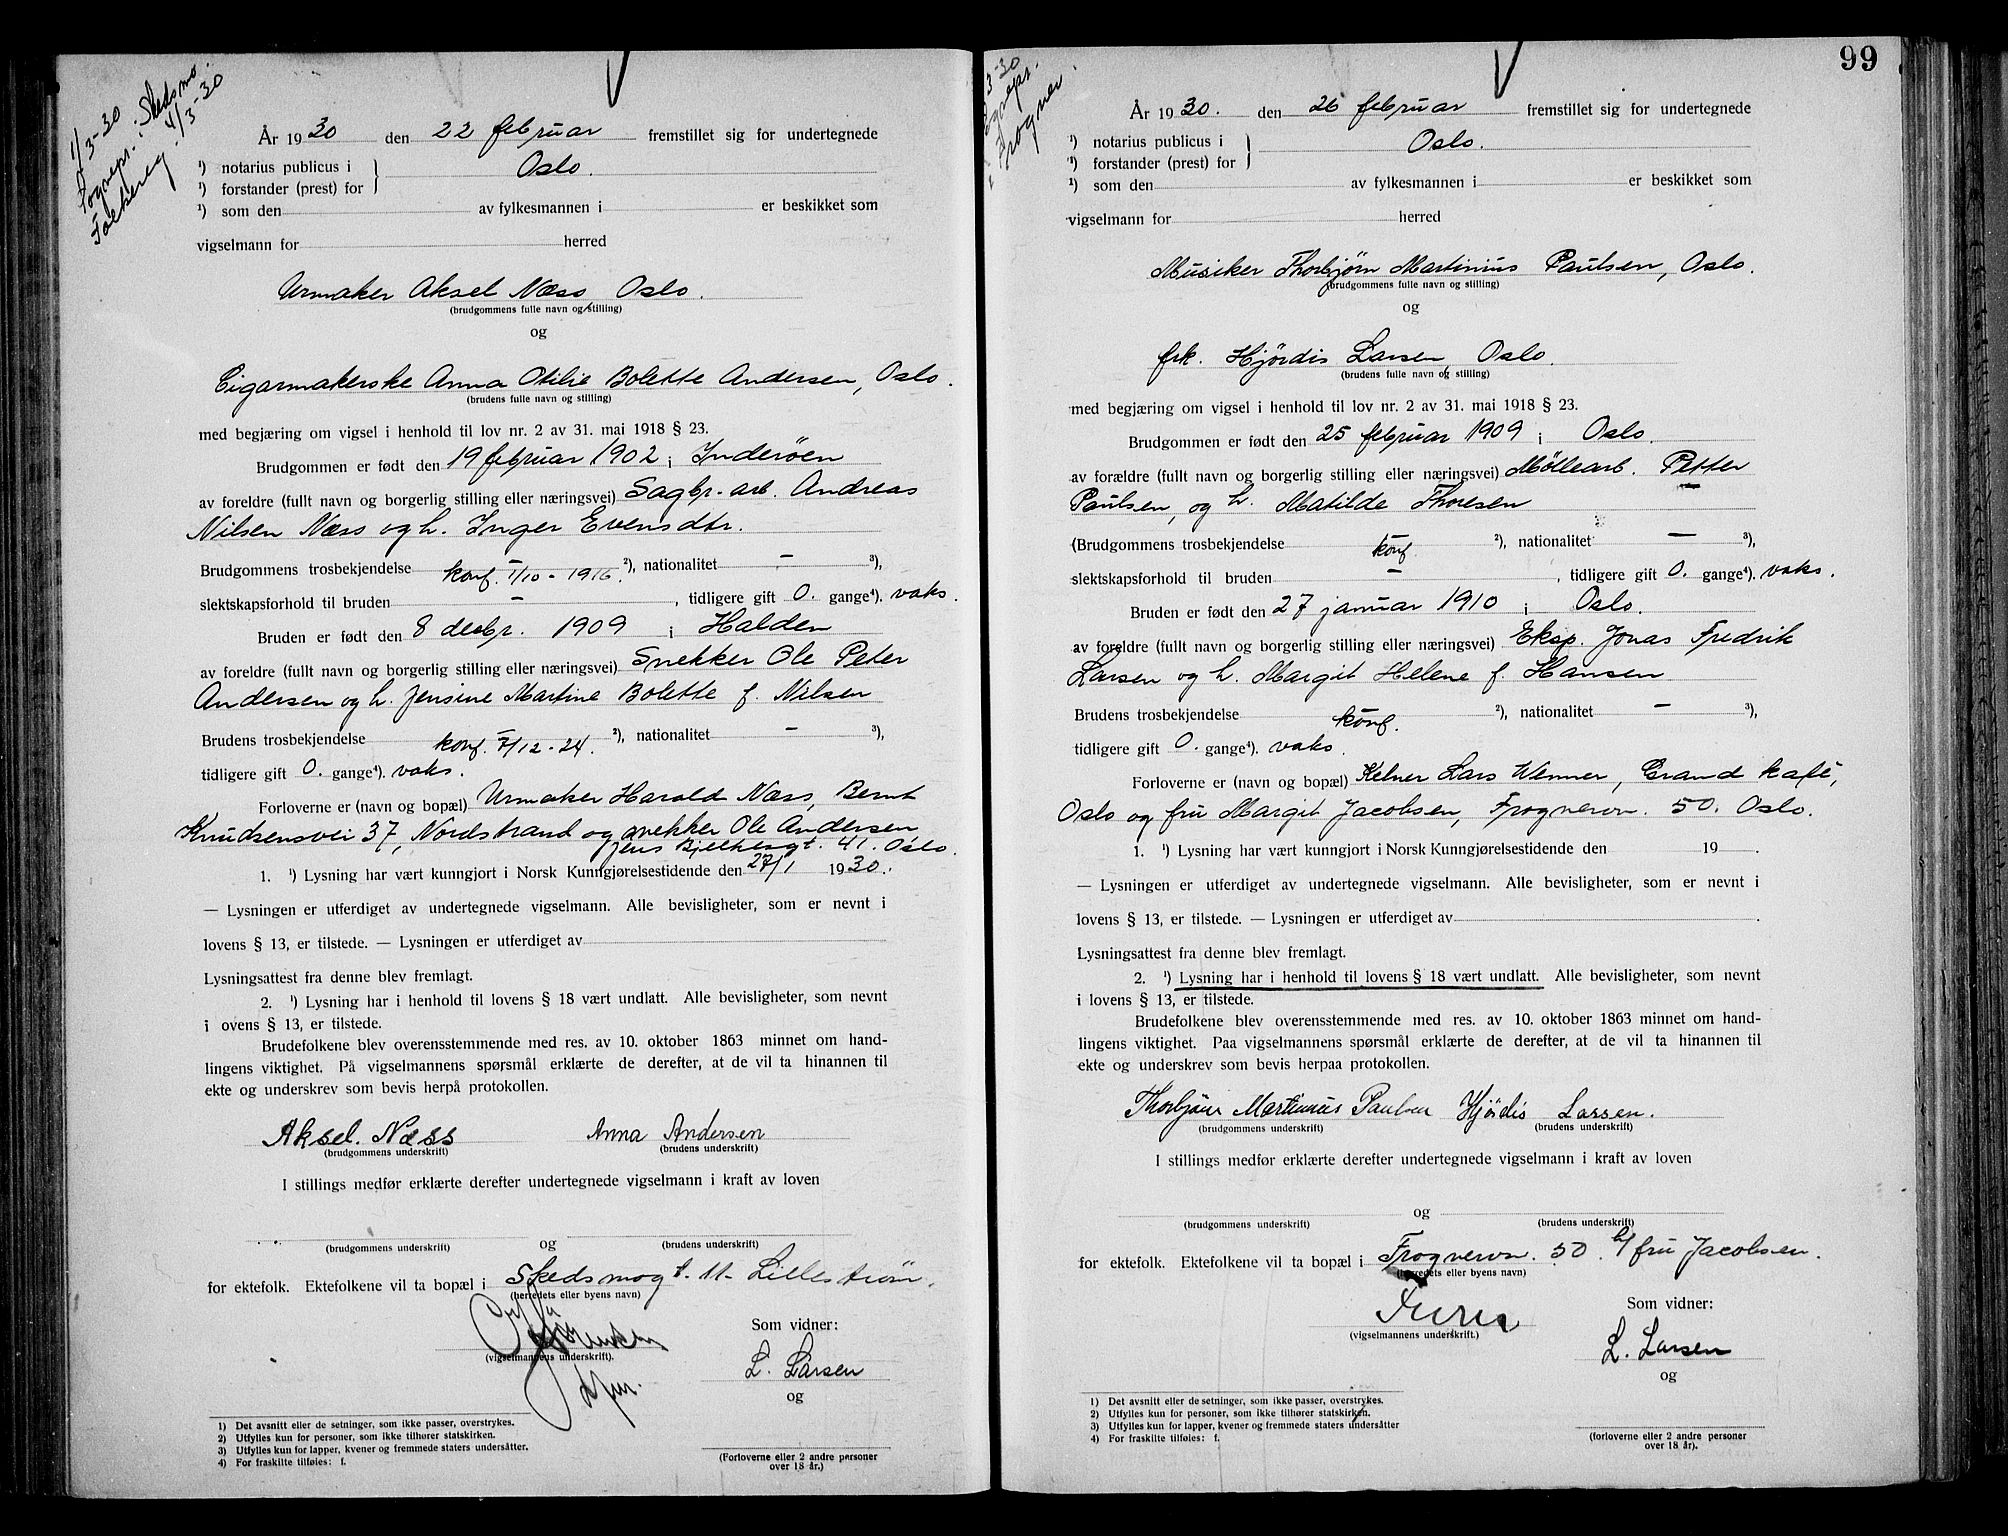 1/3-30
Sognepr. i Skedsmo.
Folkereg. 4/3-30
År 1930 den 22 februar fremstillet sig for undertegnede
¹) notarius publicus i
Oslo.
¹) forstander (prest) for
¹) som den av fylkesmannen i er beskikket som
vigselmann for herred
Urmaker Aksel Næss, Oslo.
(brudgommens fulle navn og stilling)
og
Cigarmakerske Anna Otilie Bolette Andersen, Oslo.
(brudens fulle navn og stilling)
med begjæring om vigsel i henhold til lov nr. 2 av 31. mai 1918 § 23.
Brudgommen er født den 19 februar 1902 i Inderöen
av foreldre (fullt navn og borgerlig stilling eller næringsvei) Sagbr. arb. Andreas
Nilsen Næss og h. Inger Evensdtr.
Brudgommens trosbekjendelse konf. 1/10-1916. ²), nationalitet — ³),
slektskapsforhold til bruden — , tidligere gift 0. gange⁴). vaks.
Bruden er født den 8 decbr. 1909 i Halden
av foreldre (fullt navn og borgerlig stilling eller næringsvei) Snekker Ole Peter
Andersen og h. Jensine Martine Bolette f. Nilsen
Brudens trosbekjendelse konf. 7/12-24. ²), nationalitet — ³),
tidligere gift 0. gange⁴). vaks.
Forloverne er (navn og bopæl) Urmaker Harald Næss, Bernt
Knudsensvei 37, Nordstrand og snekker Ole Andersen
Jens Bjelkesgt. 41. Oslo.
1. ¹) Lysning har vært kunngjort i Norsk Kunngjørelsestidende den 27/1 1930.
— Lysningen er utferdiget av undertegnede vigselmann. Alle bevisligheter, som er nevnt i
lovens § 13, er tilstede. — Lysningen er utferdiget av
Lysningsattest fra denne blev fremlagt.
2. ¹) Lysning har i henhold til lovens § 18 vært undlatt. Alle bevisligheter, som nevnt
i ovens § 13, er tilstede.
Brudefolkene blev overensstemmende med res. av 10. oktober 1863 minnet om hand-
lingens viktighet. På vigselmannens spørsmål erklærte de derefter, at de vil ta hinannen til
ekte og underskrev som bevis herpå protokollen.
Aksel. Næss Anna Andersen
(brudgommens underskrift) (brudens underskrift)
I stillings medfør erklærte derefter undertegnede vigselmann i kraft av loven
og
(brudgommens underskrift) (brudens underskrift)
for ektefolk. Ektefolkene vil ta bopæl i Skedsmogt. 11- Lillestrøm.
(herredets eller byens navn)
(vigselmannens underskrift).
Som vidner:
L. Larsen
og
1) Det avsnitt eller de setninger, som ikke passer, overstrykes.
2) Utfylles kun for personer, som ikke tilhører statskirken.
3) Utfylles kun for lapper, kvener og fremmede staters undersåtter.
4) For fraskilte tilføies: f.
(Forloverne eller 2 andre personer
over 18 år.)
99
3-30
Sognepr.
i Frogner.
År 1930. den 26 februar fremstillet sig for undertegnede
¹) notarius publicus i
Oslo.
¹) forstander (prest) for
¹) som den av fylkesmannen i er beskikket som
vigselmann for herred
Musiker Thorbjørn Martinius Paulsen, Oslo.
(brudgommens fulle navn og stilling)
og
frk. Hjørdis Larsen, Oslo.
(brudens fulle navn og stilling)
med begjæring om vigsel i henhold til lov nr. 2 av 31. mai 1918 § 23.
Brudgommen er født den 25 februar 1909 i Oslo.
av forældre (fullt navn og borgerlig stilling eller næringsvei) Møllearb. Petter
Paulsen, og h. Matilde Thoresen
(Brudgommens trosbekjendelse konf. ²), nationalitet — ³),
slektskapsforhold til bruden — , tidligere gift 0. gange⁴). vaks.
Bruden er født den 27 januar 1910 i Oslo.
av foreldre (fullt navn og borgerlig stilling eller næringsvei) Eksp. Jonas Fredrik
Larsen og h. Margit Helene f. Hansen
Brudens trosbekjendelse konf. ²), nationalitet — ³),
tidligere gift 0. gange⁴). vaks.
Forloverne er (navn og bopæl) Kelner Lars Wenner, Grand kafé,
Oslo og fru Margit Jacobsen, Frognervn. 50. Oslo.
1. ¹) Lysning har vært kunngjort i Norsk Kunngjørelsestidende den 19 .
— Lysningen er utferdiget av undertegnede vigselmann. Alle bevisligheter, som er nevnt i
lovens § 13, er tilstede. — Lysningen er utferdiget av .
Lysningsattest fra denne blev fremlagt.
2. ¹) Lysning har i henhold til lovens § 18 vært undlatt. Alle bevisligheter, som nevnt
i lovens § 13, er tilstede.
Brudefolkene blev overensstemmende med res. av 10. oktober 1863 minnet om hand-
lingens viktighet. Paa vigselmannens spørsmål erklærte de derefter, at de vil ta hinannen til
ekte og underskrev som bevis herpaa protokollen.
Thorbjörn Martinius Paulsen Hjördis Larsen.
(brudgommens underskrift) (brudens underskrift)
I stillings medfør erklærte derefter undertegnede vigselmann i kraft av loven
og
(brudgommens underskrift) (brudens underskrift)
for ektefolk. Ektefolkene vil ta bopæl i Frognervn. 50. b/ fru Jacobsen.
(herredets eller byens navn)
(vigselmannens underskrift.)
Som vidner:
L. Larsen
og
1) Det avsnitt eller de setninger, som ikke passer, overstrykes.
2) Utfylles kun for personer, som ikke tilhører statskirken.
3) Utfylles kun for lapper, kvener og fremmede staters undersåtter
4) For fraskilte tilføies: f.
(forloverne eller 2 andre personer
over 18 år).